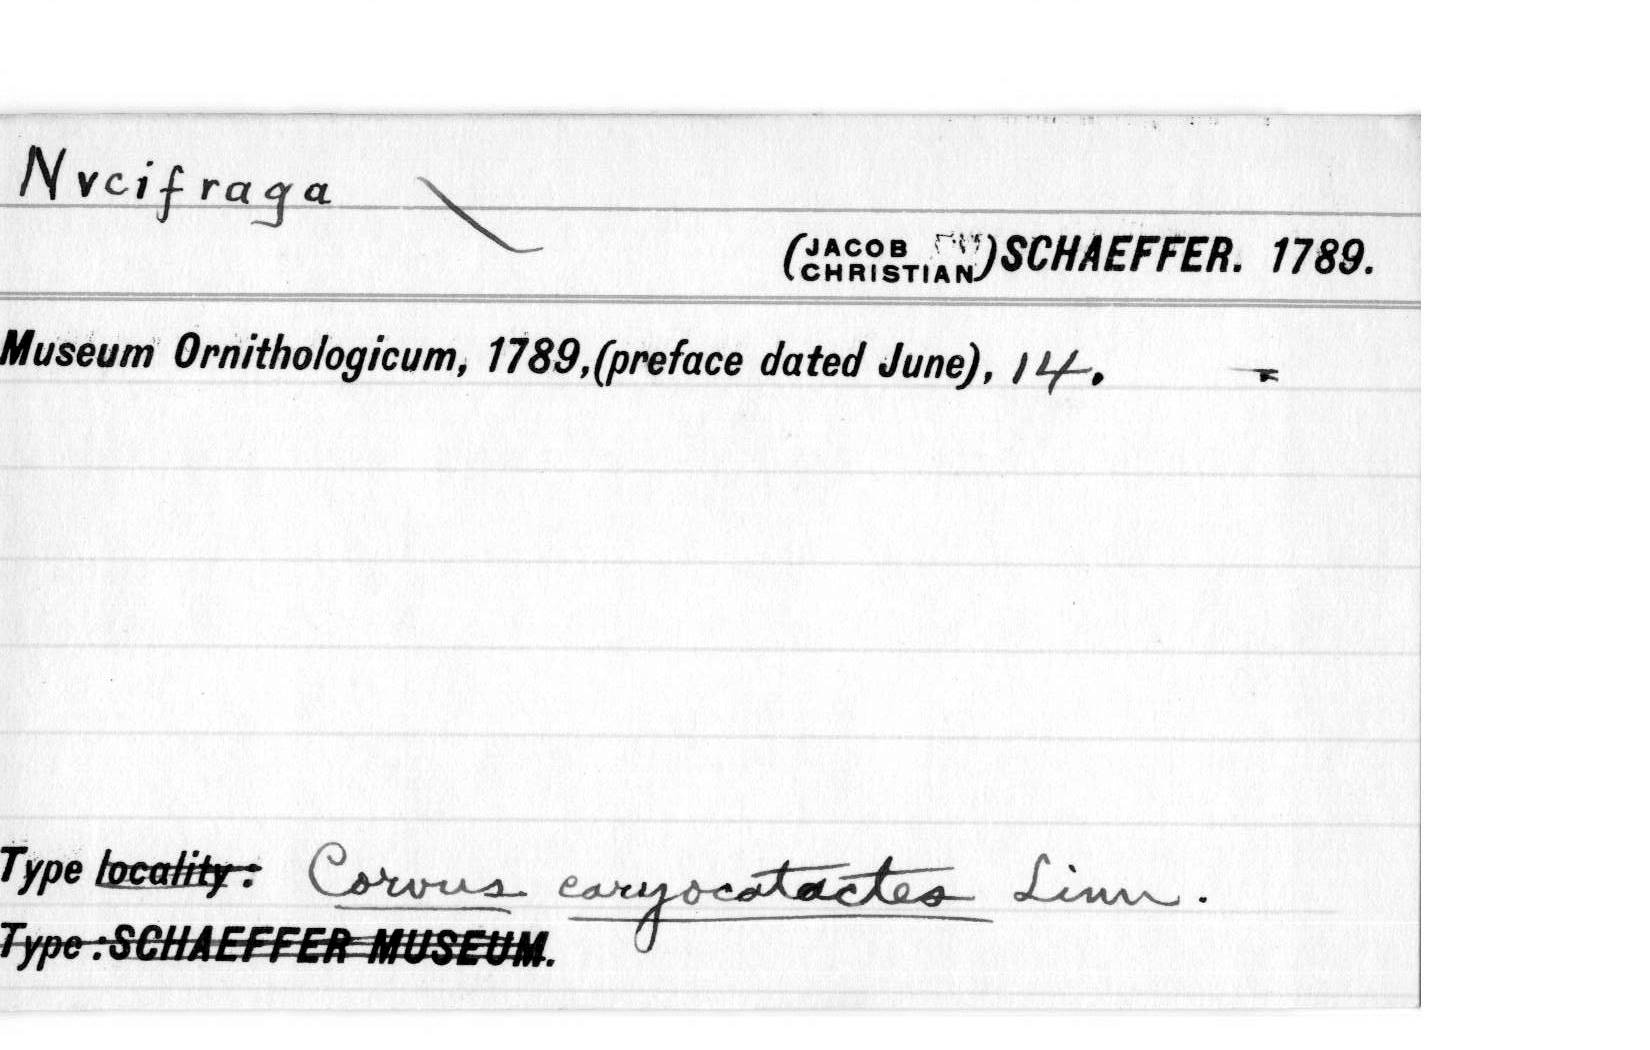 Nvcifraga
(JACOB CHRISTIAN) SCHAEFFER. 1789.
Museum Ornithologicum, 1789,(preface dated June), 14.
Type locality: Corvus caryocatactes Linn.
Type: SCHAEFFER MUSEUM.